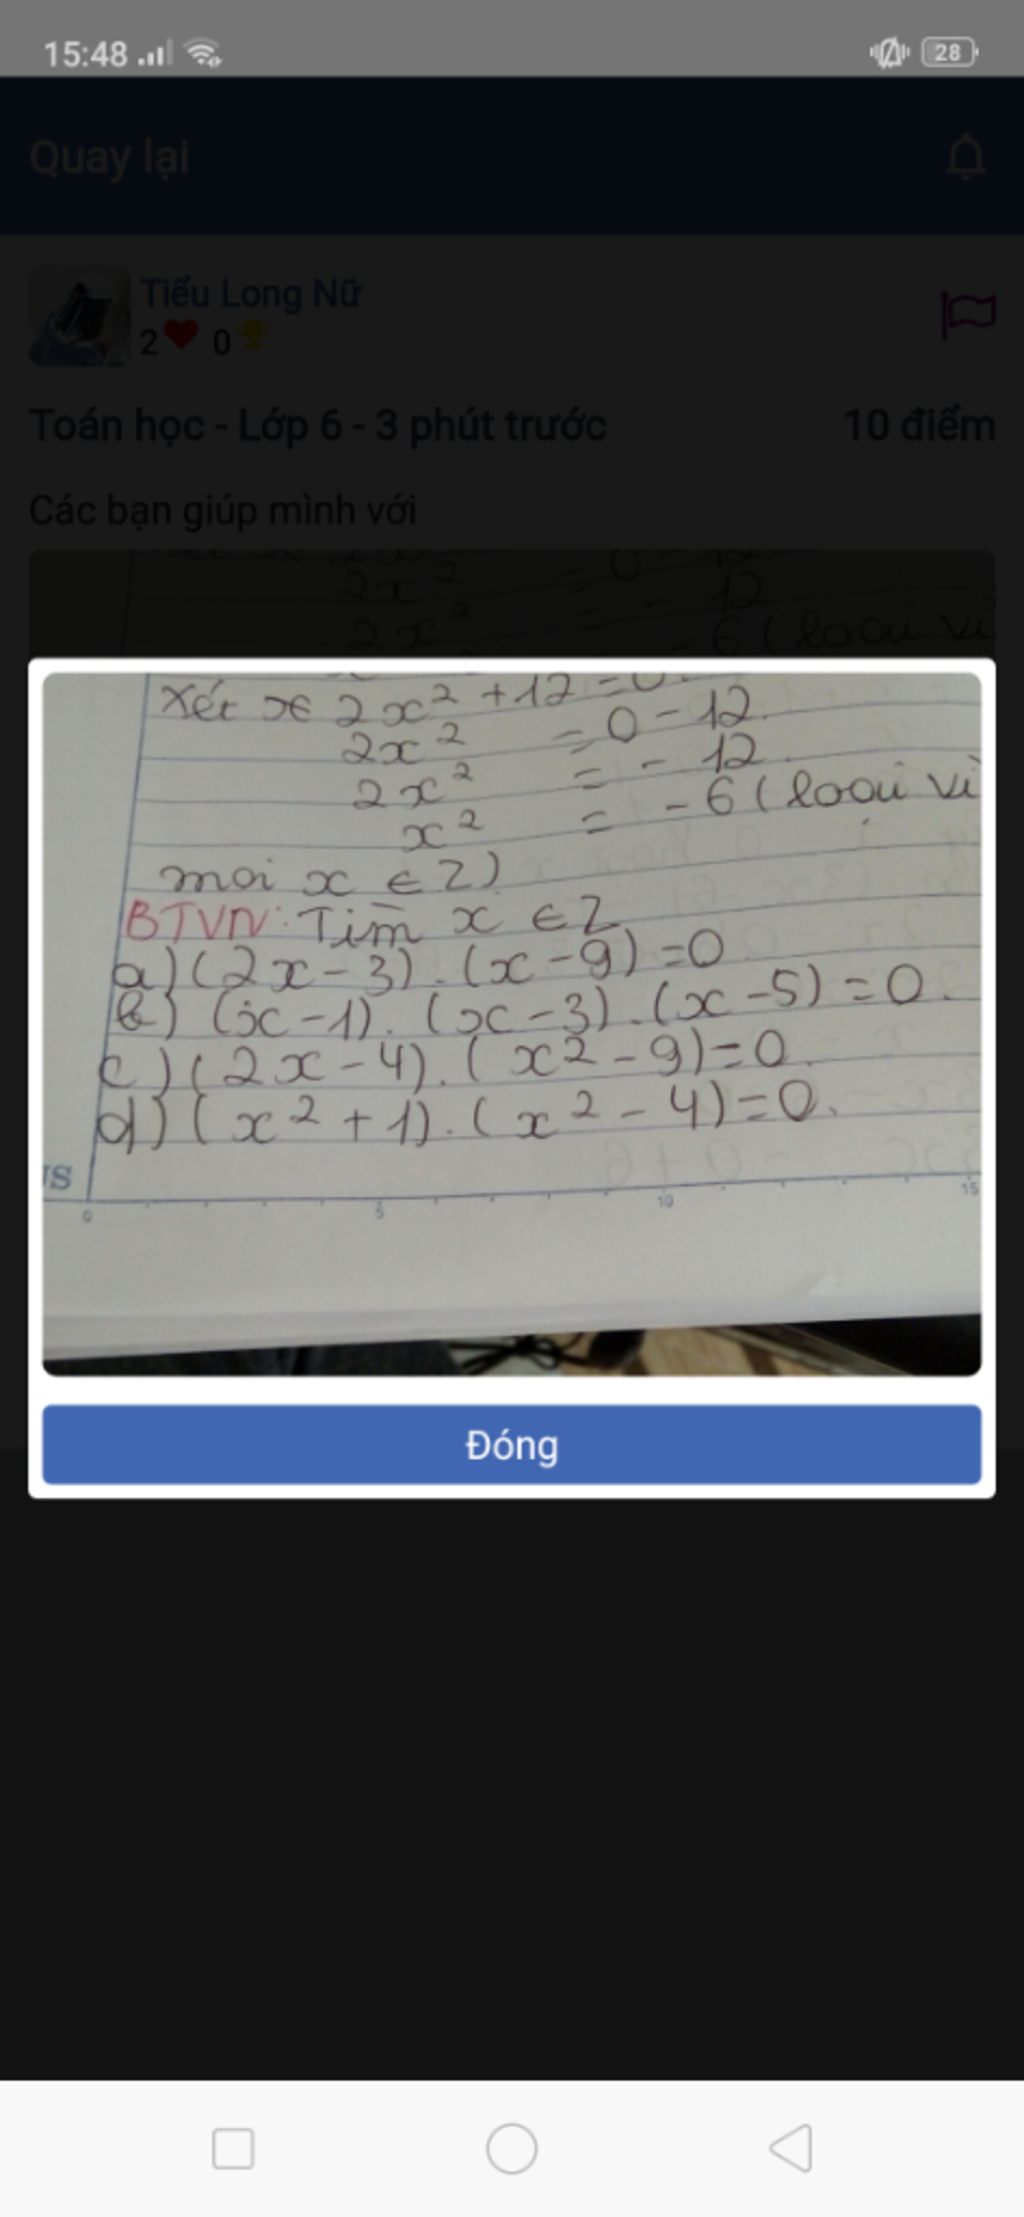 15:48
28
Quay lại
Tiểu Long Nữ
2 0
Toán học - Lớp 6 - 3 phút trước
10 điểm
Các bạn giúp mình với
2x² = 0 - 12
2x² = - 12
- 6 (loại vì
Xét 2x² + 12 = 0
2x² = 0 - 12.
2x² = - 12
x² = - 6 (loại vì
mọi x ∈ Z)
BTVN: Tìm x ∈ Z
a) (2x - 3) . (x - 9) = 0
b) (x - 1) . (x - 3) . (x - 5) = 0.
c) (2x - 4) . (x2 - 9) = 0.
d) (x² + 1) . (x² - 4) = 0.
US
0 5 10 15
Đóng